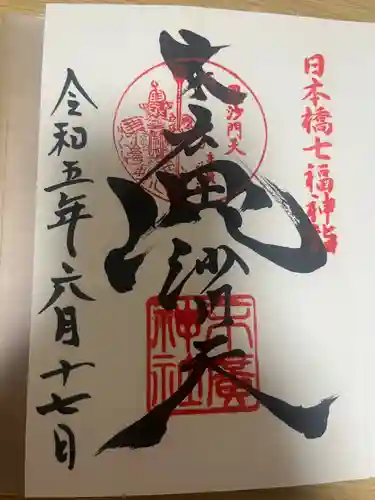 日本橋七福神詣
末廣
毘沙門天
毘沙門天
末廣神社
令和五年六月十七日